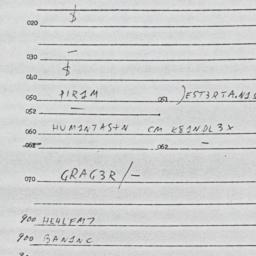 $
020
—
030
$
040
050 PIR1M 051 )EST3RTA.N1S
052 —
060 HUM1NTAS+N CM KE1NDL3X
062 —
070 GRAG3R/—
900 HE4LFM7
900 BAN1NC